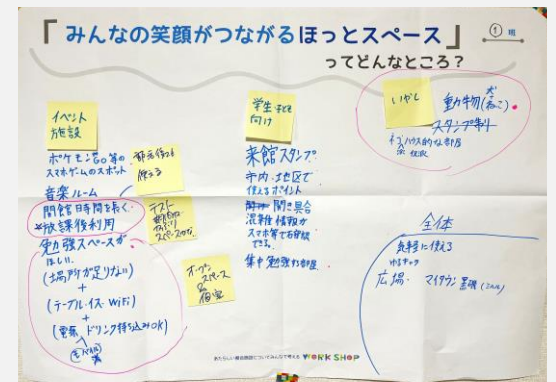 「みんなの笑顔がつながるほっとスペース」
① 班
ってどんなところ？
イベント
施設
ポケモンGO等の
スマホゲームのスポット
音楽ルーム
開館日時間を長く
*放課後利用
勉強スペースが
ほしい
(場所が足りない)
+
(テーブル・イス・WiFi)
+
(電源 ドリンク持ち込みOK)
使える
テスト
スペース
オープン
スペース
&
個室
学生・子ども
向け
来館スタンプ
市内・地区で
使えるポイント
開き具合
混雑情報が
スマホ等で
できる
集中勉強する部屋
いやし
動物(犬 ねこ)
スタンプ
全体
気軽に使える
ゆるキャラ
広場・マイタウン
あたらしい複合施設についてみんなで考える WORK SHOP